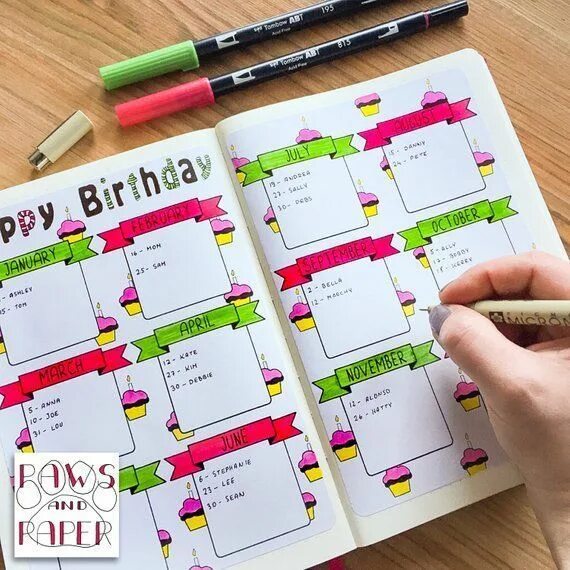 Tombow ABT 195
Acid Free
Tombow ABT 815
Acid Free
ppy Birhday
JANUARY
- ASHLEY
TOM
FEBRUARY
16 - MOM
25 - SAM
MARCH
5 - ANNA
10 - JOE
31 - LOU
APRIL
12 - KATE
27 - KIM
30 - DEBBIE
JUNE
6 - STEPHANIE
23 - LEE
30 - SEAN
JULY
19 - ANDREA
23 - SALLY
30 - DEBS
AUGUST
15 - DANNY
24 - PETE
SEPTEMBER
2 - BELLA
12 - MOOCHY
OCTOBER
5 - ALLY
17 - BOBBY
18 - KERRY
NOVEMBER
12 - ALONSO
26 - HATTY
MICRON
PAWS
AND
PAPER